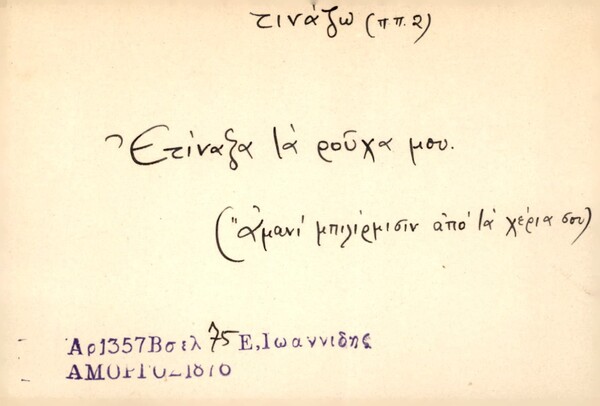 τινάζω (ππ. 2)
Ἐτίναξα τὰ ροῦχα μου.
("Ἀμανὶ μπιλίρμισιν ἀπὸ τὰ χέρια σου)
Ἀρ1357Βσελ 75 Ε,Ἰωαννιδης
ΑΜΟΡΓΟΣ1876